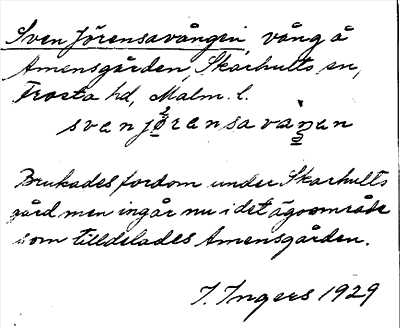 Sven Jörensavången, vång å
Amensgården, Skarhults sn,
Frosta hd, Malm. l.
svenjöransavaŋen
Brukades fordom under Skarhults
gård men ingår nu i det ägoområde
som tilldelades Amensgården.
I. Ingers 1929